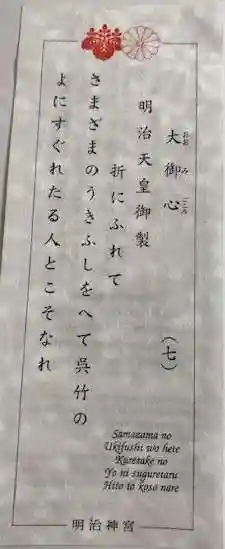 大御心
おおみごころ
(七)
明治天皇御製
折にふれて
さまざまのうきふしをへて呉竹の
よにすぐれたる人とこそなれ
Samazama no
Ukifushi wo hete
Kuretake no
Yo ni suguretaru
Hito to koso nare
明治神宮